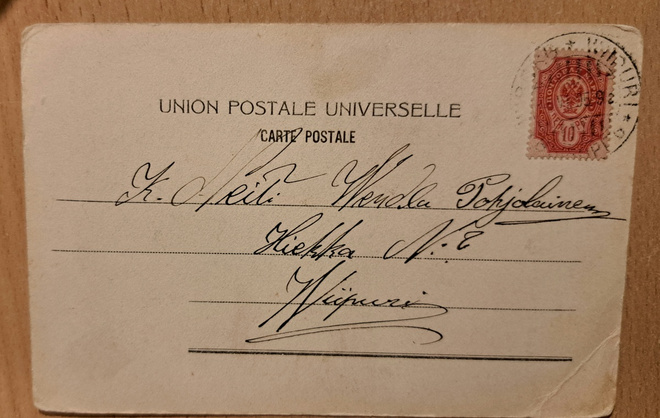 UNION POSTALE UNIVERSELLE
CARTE POSTALE
10
K. Neiti Wendla Pohjolainen
Hiekka N:
Wiipuri